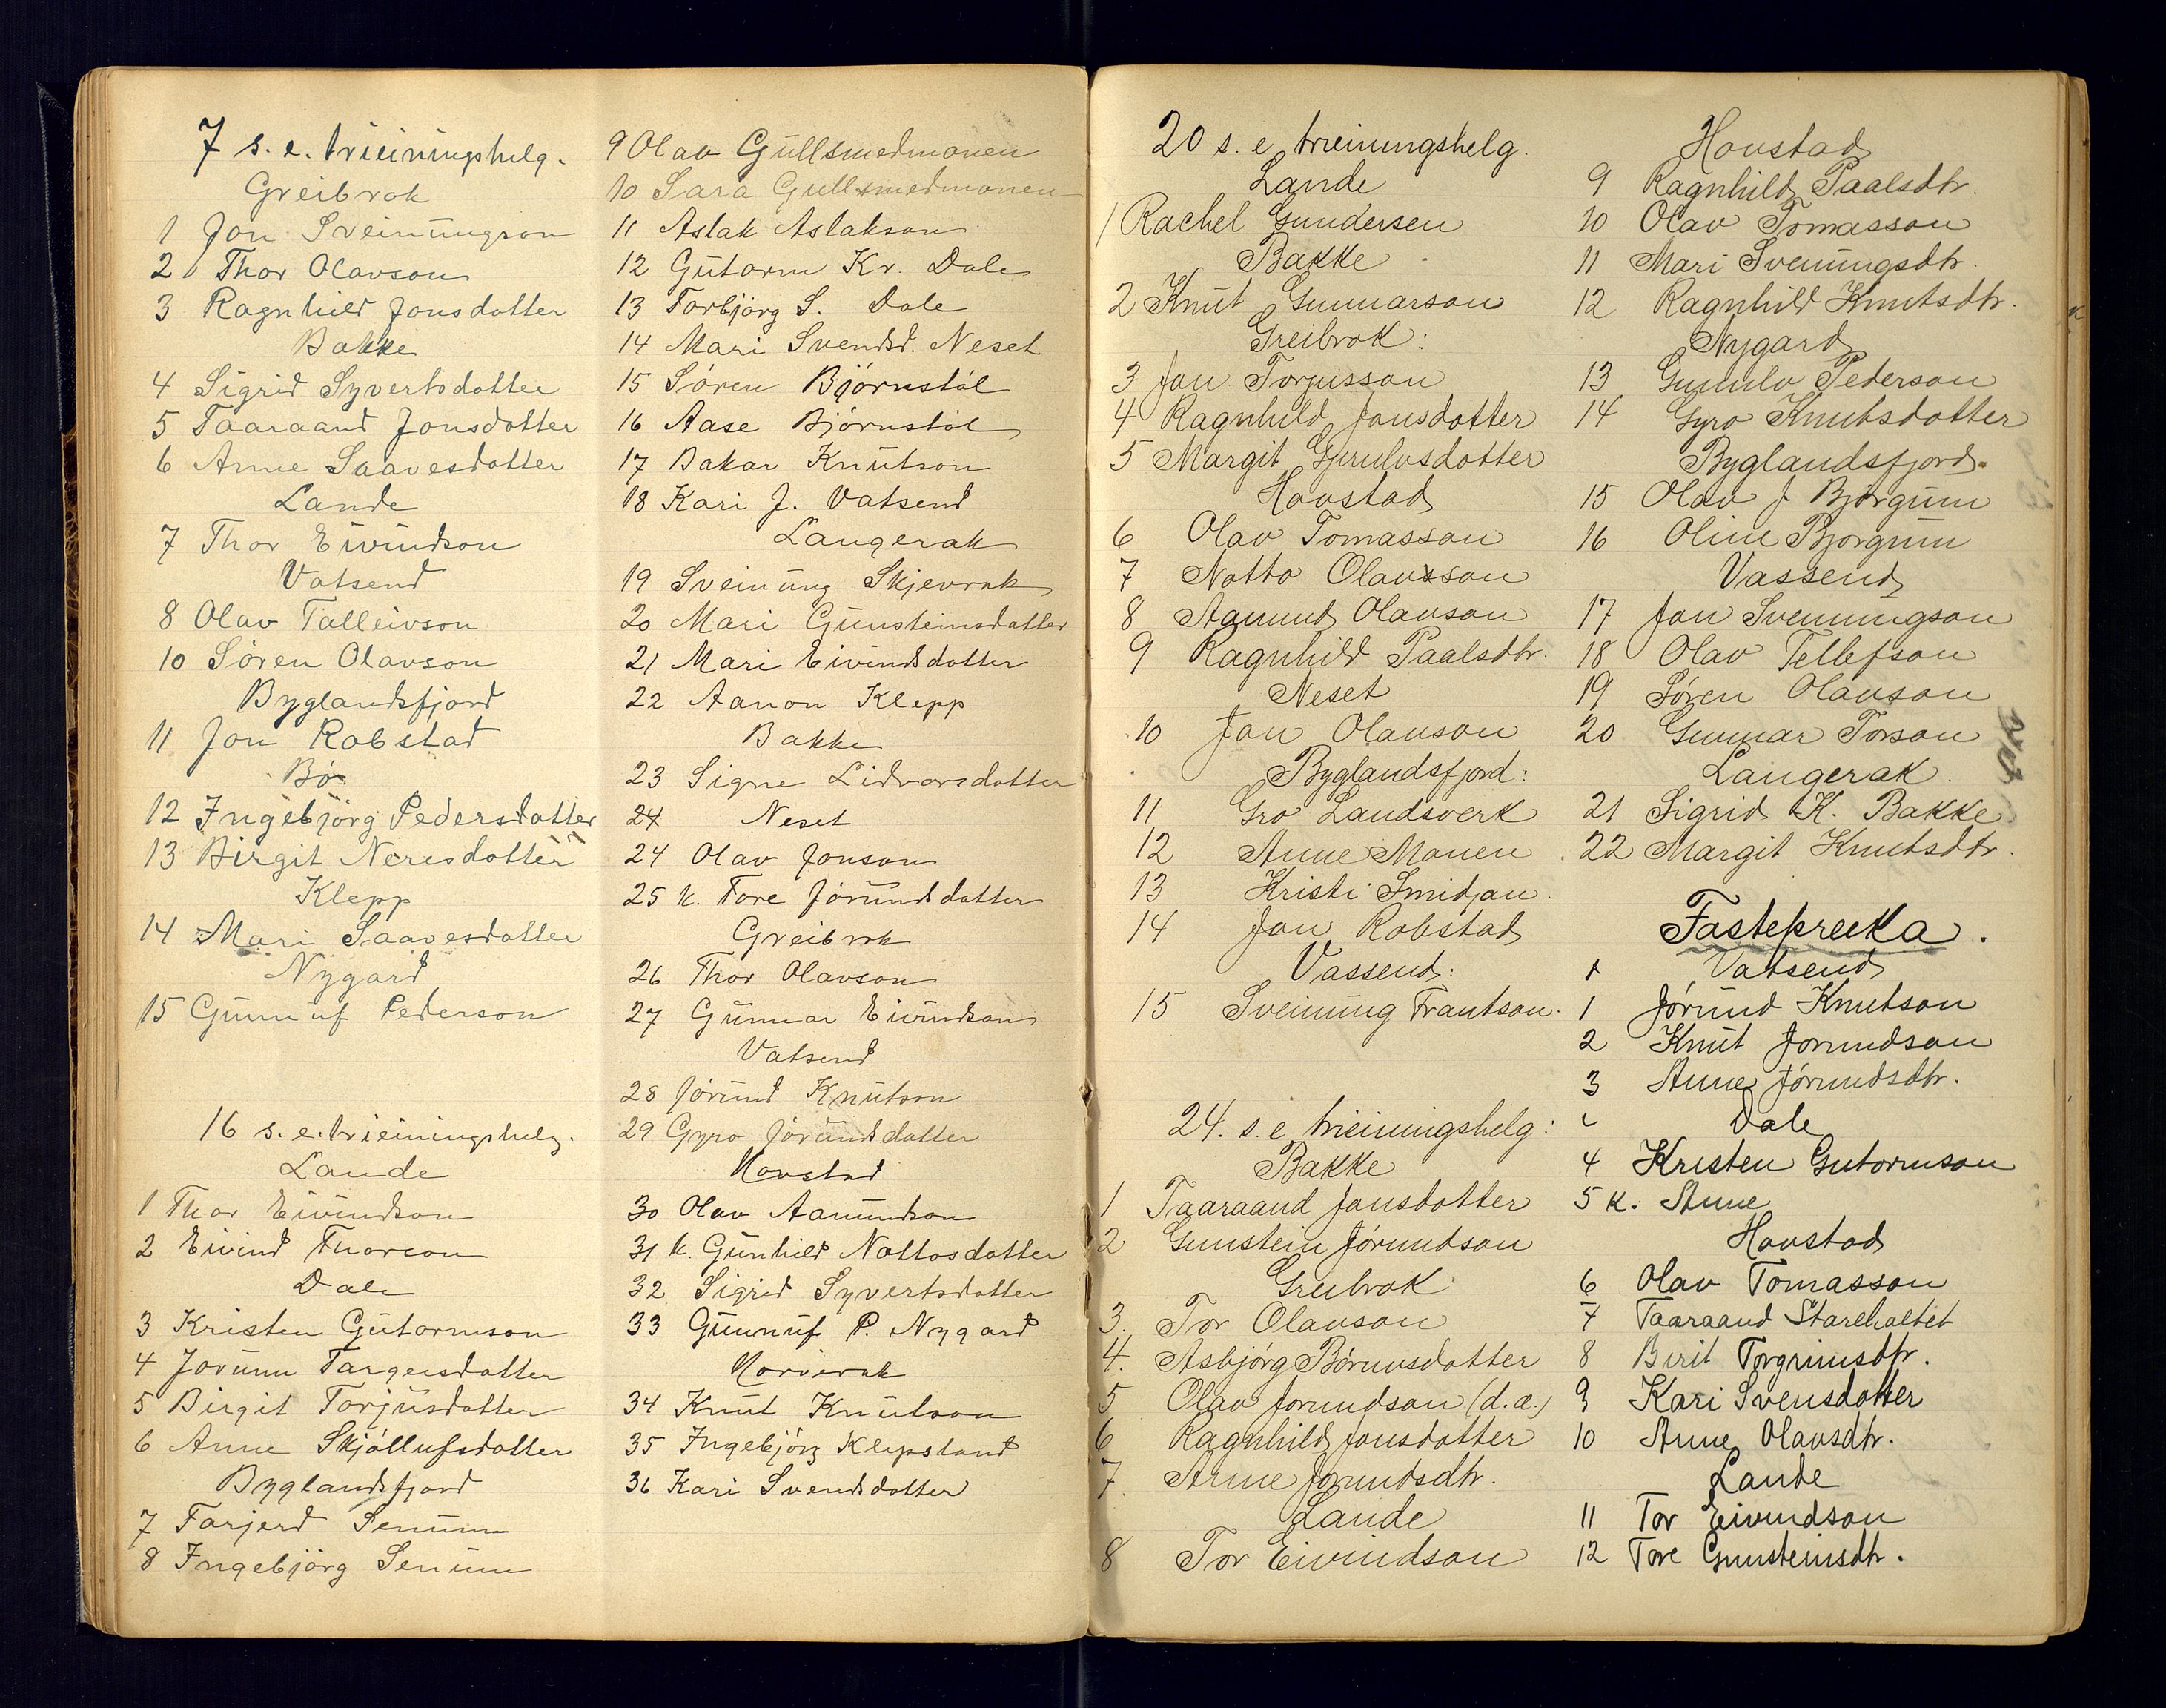 7 s. e. trieiningshelg.
Greibrok
1 Jon Sveinungson
2 Thor Olavson
3 Ragnhild Jonsdotter
Bakke
4 Sigrid Syvertsdotter
5 Taaraand Jonsdotter
6 Anne Saavesdotter
Lande
7 Thor Eivindson
Vatsend
8 Olav Talleivson
10 Søren Olavson
Byglandsfjord
11 Jon Robstad
Bø
12 Ingebjörg Pedersdotter
13 Birgit Neresdotter
Klepp
14 Mari Saavesdotter
Nygard
15 Gunnuf Pederson
16 s. e. trieiningshelg.
Lande
1 Thor Eivindson
2 Eivind Thorson
Dale
3 Kristen Gutormson
4 Jorunn Targeisdotter
5 Birgit Torjusdotter
6 Anne Skjöllufsdotter
Byglandsfjord
7 Torjerd Senum
8 Ingebjörg Senum
9 Olav Gullsmedmonen
10 Sara Gullsmedmonen
11 Aslak Aslakson
12 Gutorm Kr. Dale
13 Torbjörg S. Dale
14 Mari Svendsd. Neset
15 Søren Bjørnstøl
16 Aase Bjørnstøl
17 Bakar Knutson
18 Kari J. Vatsend
Langerak
19 Sveinung Skjevrak
20 Mari Gunsteinsdotter
21 Mari Eivindsdotter
22 Aanon Klepp
Bakke
23 Signe Lidvorsdotter
24 Neset
24 Olav Jonson
25 k. Tore Jørundsdotter
Greibrok
26 Thor Olavson
27 Gunnar Eivindson
Vatsend
28 Jørund Knutson
29 Gyro Jørundsdotter
Hovstad
30 Olav Aamundson
31 k. Gunhild Nottosdotter
32 Sigrid Syvertsdotter
33 Gunnuf P. Nygard
Horverak
34 Knut Knutson
35 Ingebjörg Klepsland
36 Kari Svendsdotter
20 s. e. trieiningshelg.
Lande
1 Rachel Gundersen
Bakke
2 Knut Gunnarson
Greibrok:
3 Jon Torjusson
4 Ragnhild Jonsdotter
5 Margit Gunlvsdotter
Hovstad
6 Olav Tomasson
7 Notto Olavsson
8 Aamund Olavson
9 Ragnhild Paalsdtr.
Neset
10 Jon Olavson
Byglandsfjord:
11 Gro Landsverk
12 Anne Monen
13 Kristi Smidjan.
14 Jon Robstad
Vassend:
15 Sveinung Frantson.
24. s. e trieiningshelg:
Bakke
1 Taaraand Jonsdotter
2 Gunstein Jørundson
Greibrok
3. Tor Olavson
4. Asbjórg Bóruvsdotter
5 Olav Jorundson (d.æ.)
6 Ragnhild Jonsdotter
7. Anne Jorundsdtr.
Lande
8 Tor Eivindson
Hovstad
9 Ragnhild Paalsdtr.
10 Olav Tomasson
11 Mari Sveinungsdtr.
12 Ragnhild Knutsdtr.
Nygard
13 Gunnlv Pederson
14 Gyro Knutsdotter
Byglandsfjord.
15 Olav J Bjørgum
16 Oline Bjorgum
Vassend
17 Jon Sveinungson
18 Olav Tellefson
19 Søren Olavson
20 Gunnar Torson
Langerak.
21 Sigrid K. Bakke.
22 Margit Knutsdtr.
Fastepreeka.
Vatsend
1 Jórund Knutson
2 Knut Jorundson
3 Anne Jórundsdtr.
Dale
4 Kristen Gutormson
5 k. Anne
Hovstad
6 Olav Tomasson
7 Taaraand Stareholtet
8 Birit Torgrimsdtr.
9 Kari Svensdotter
10 Anne Olavsdtr.
Lande
11 Tor Eivindson
12 Tore Gunsteinsdtr.